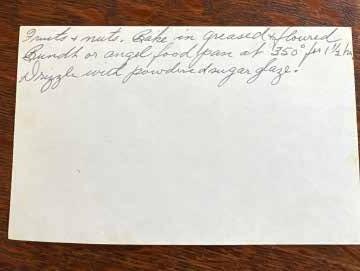 Fruits + nuts. Bake in greased + floured
Bundt or angel food pan at 350° for 1 1/2 hr
Drizzle with powdered sugar glaze.